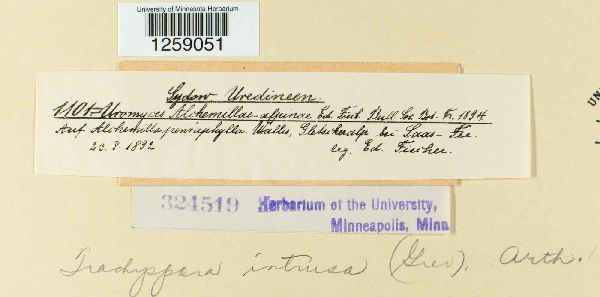 University of Minnesota Herbarium
1259051
Sydow Uredineen.
1101. Uromyces Alchemillae-alpinae Ed. Fisch. Bull. Soc. Bot. Fr. 1894
Auf Alchemilla pentaphyllea Wallis, Gletscheralp bei Saas-Fee.
20.8.1892 leg. Ed. Fischer.
324519 Herbarium of the University,
Minneapolis, Minn
Trachyspora intrusa (Grev). Arth.
UN